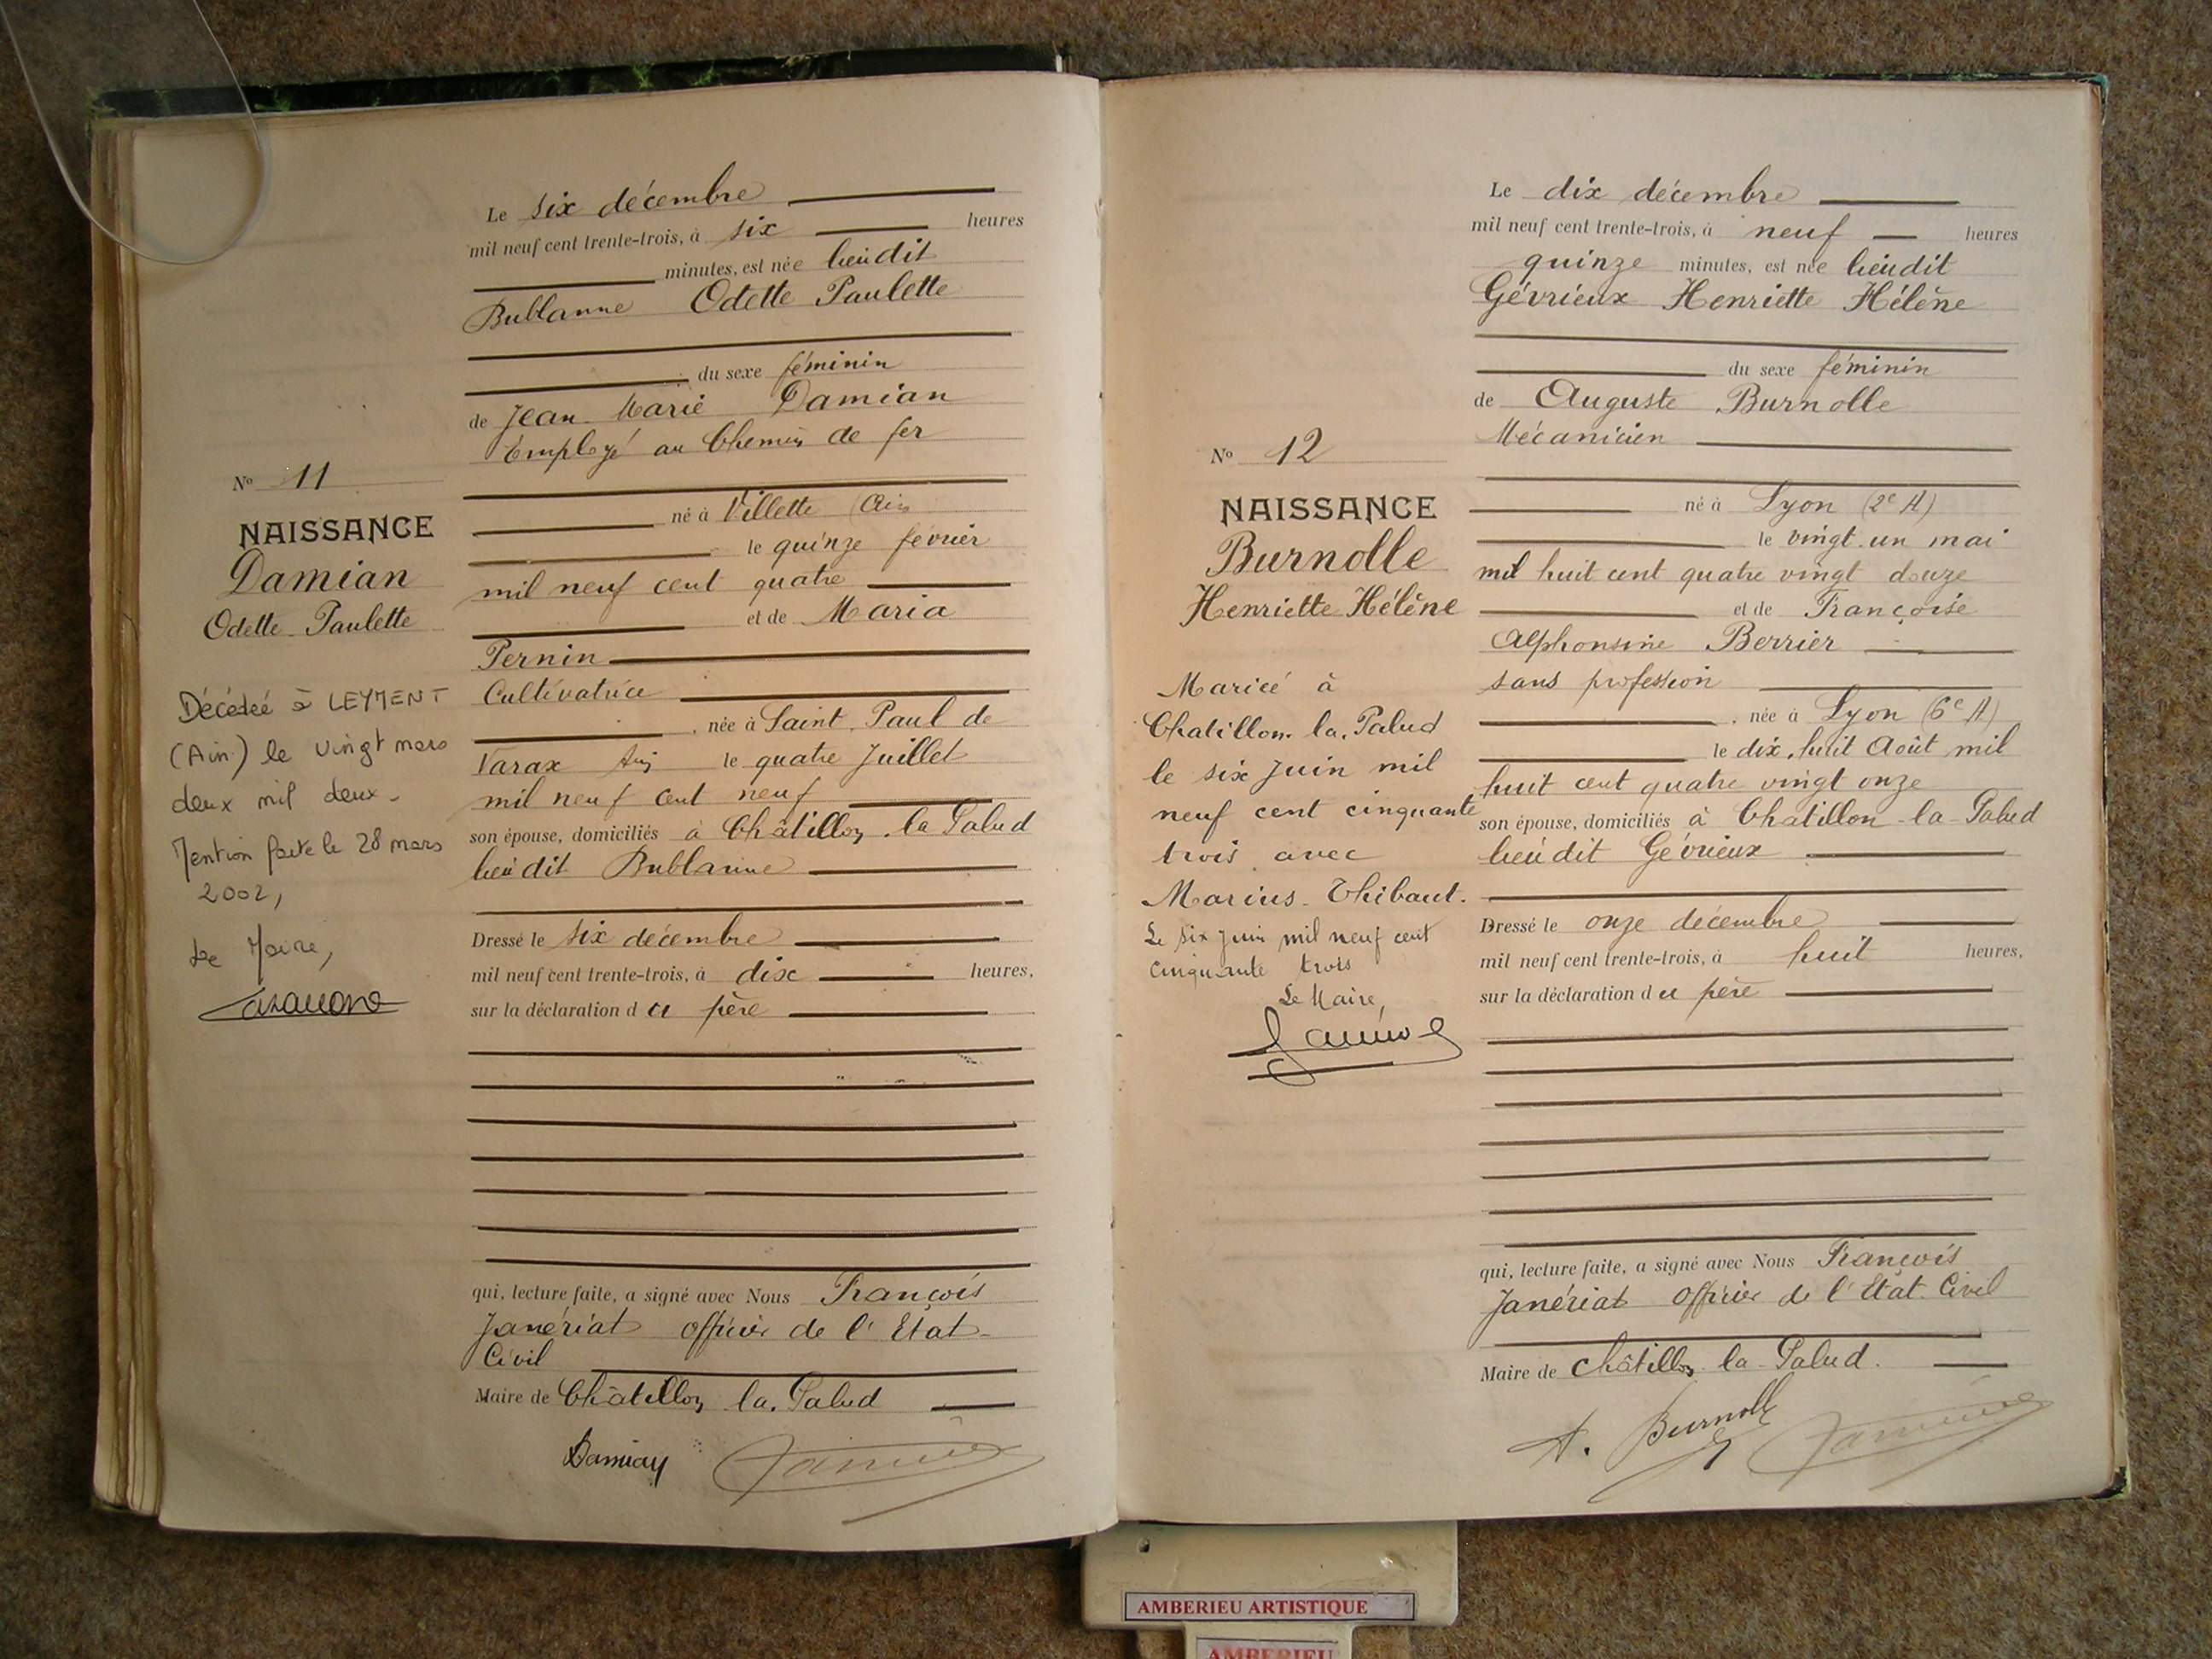 Le six décembre
mil neuf cent trente-trois, à six heures
minutes, est née lieudit
Bublanne Odette Paulette
du sexe féminin
de Jean Marie Damian
Employé au Chemin de fer
né à Villette (Ain
le quinze février
mil neuf cent quatre
et de Maria
Pernin
Cultivatrice
, née à Saint Paul de
Varax Ain le quatre Juillet
mil neuf cent neuf
son épouse, domiciliés à Châtillon la Palud
lieudit Bublanne
Dressé le six décembre
mil neuf cent trente-trois, à dix heures,
sur la déclaration du père
qui, lecture faite, a signé avec Nous François
Janériat officier de l'Etat-
Civil
Maire de Châtillon la Palud
Damian
No 11
NAISSANCE
Damian
Odette Paulette
Décédée à LEYMENT
(Ain) le vingt mars
deux mil deux -
Mention faite le 28 mars
2002,
Le Maire,
Le dix décembre
mil neuf cent trente-trois, à neuf heures
quinze minutes, est née lieudit
Gévrieux Henriette Hélène
du sexe féminin
de Auguste Burnolle
Mécanicien
né à Lyon (2e A)
le vingt un mai
mil huit cent quatre vingt douze
et de Françoise
Alphonsine Berrier
sans profession
, née à Lyon (6e A)
le dix huit Août mil
huit cent quatre vingt onze
son épouse, domiciliés à Chatillon-la-Palud
lieudit Gévrieux
Dressé le onze décembre
mil neuf cent trente-trois, à huit heures,
sur la déclaration du père
qui, lecture faite, a signé avec Nous François
Janériat officier de l'Etat Civil
Maire de Châtillon la-Palud.
A. Burnolle
No 12
NAISSANCE
Burnolle
Henriette Hélène
Mariée à
Chatillon la Palud
le six Juin mil
neuf cent cinquante
trois avec
Marius Thibaut.
Le six Juin mil neuf cent
cinquante trois
Le Maire,
AMBERIEU ARTISTIQUE
AMBERIEU